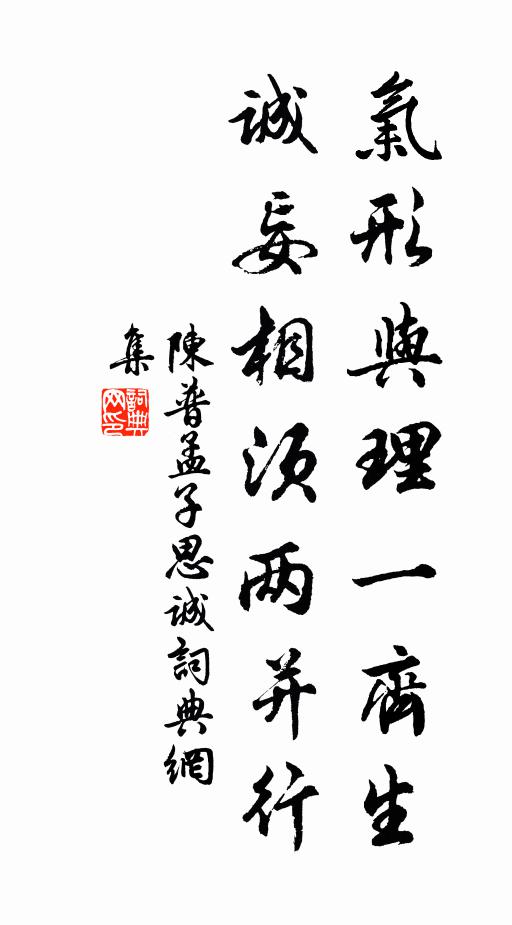 氣形與理一齊生
誠妄相須两并行
陳普孟子思誠詞典網
集
詞典
网印